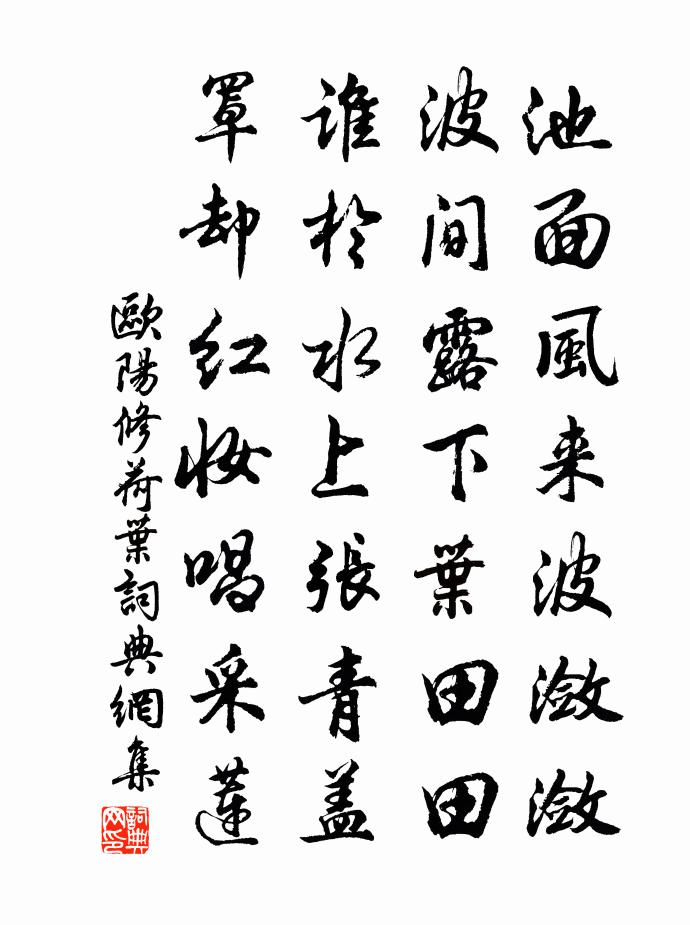 池面風来波潋潋
波間露下葉田田
誰於水上張青盖
罩却紅妝唱采蓮
歐陽修荷葉詞典網集
詞典網印